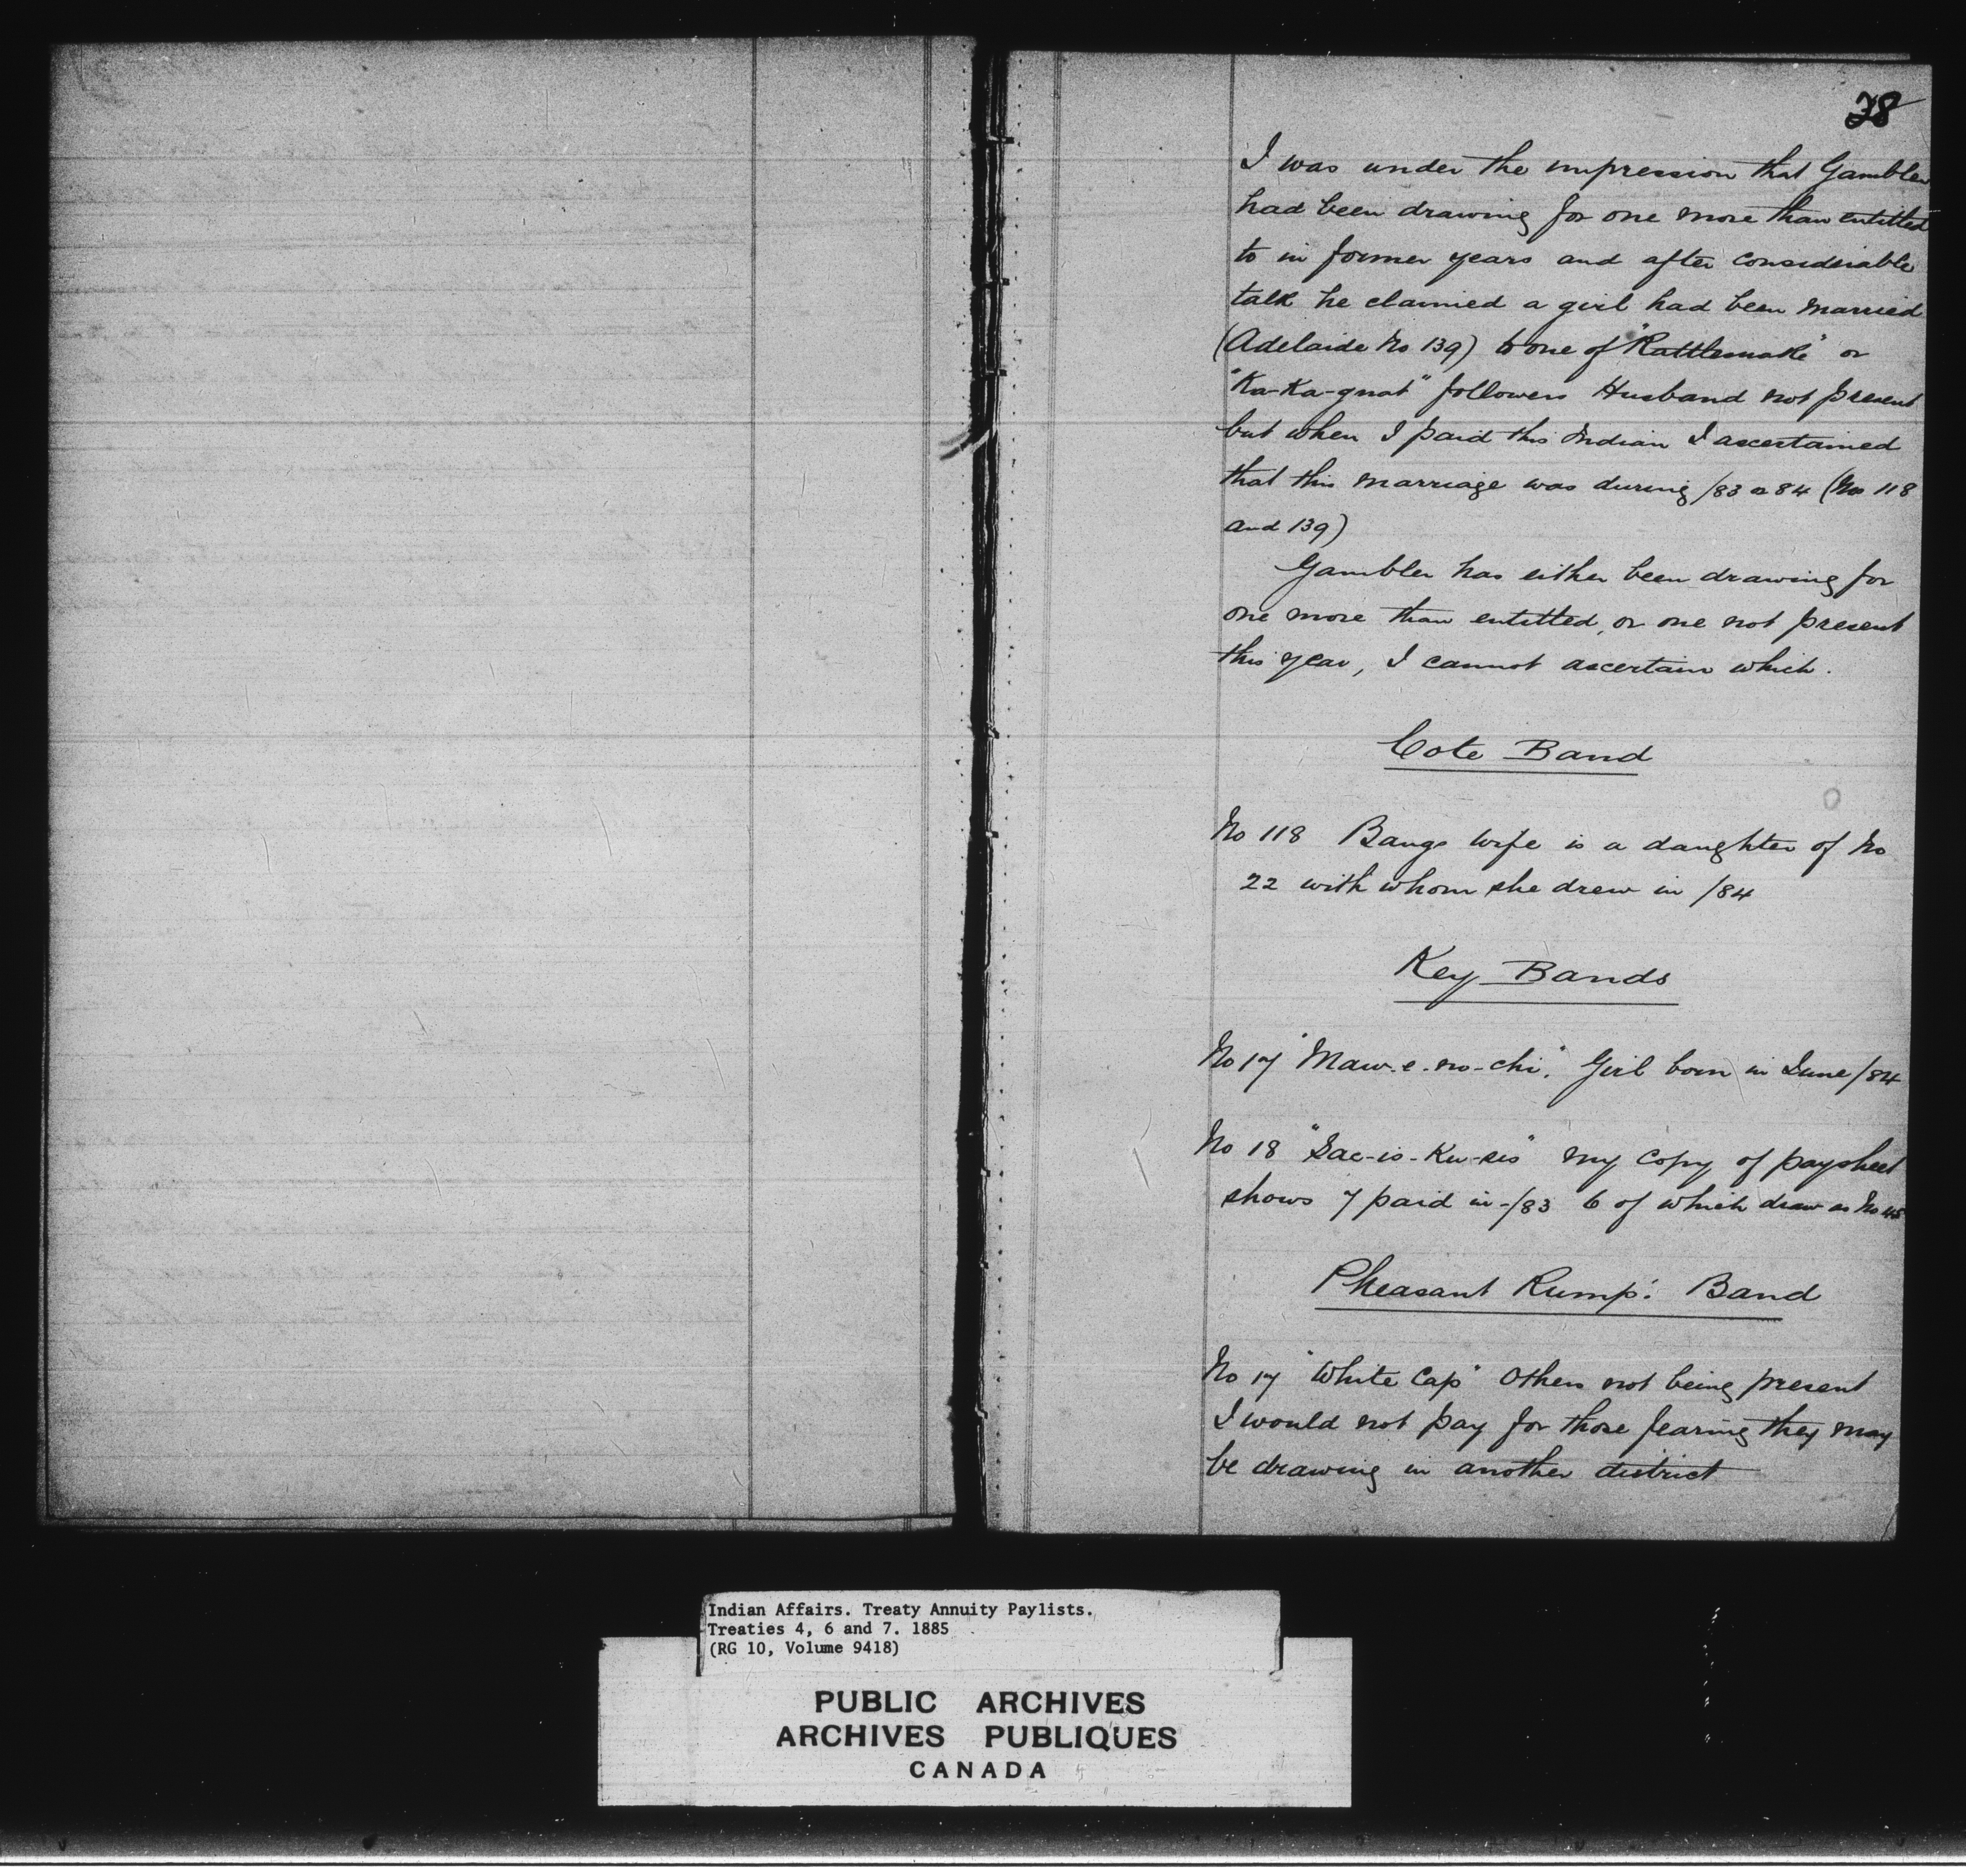 38
I was under the impression that Gambler
had been drawing for one more than entitled
to in former years and after considerable
talk he claimed a girl had been married
(Adelaide No 139) to one of "Rattlesnake" or
"Ka-Ka-gnat" followers Husband not present
but when I paid this Indian I ascertained
that this marriage was during /83 or 84 (No 118
and 139)
Gambler has either been drawing for
one more than entitled, or one not present
this year, I cannot ascertain which.
Cote Band
No 118 Bangs wife is a daughter of No
22 with whom she drew in /84
Key Bands
No 17 "Maw-e-no-chi". Girl born in June /84
No 18 "Sac-is-Ku-sis" my copy of paysheet
shows 7 paid in /83 6 of which draw as No 45
Pheasant Rump's Band
No 17 "White Cap" Others not being present
I would not pay for those fearing they may
be drawing in another district
Indian Affairs. Treaty Annuity Paylists.
Treaties 4, 6 and 7. 1885
(RG 10, Volume 9418)
PUBLIC ARCHIVES
ARCHIVES PUBLIQUES
CANADA